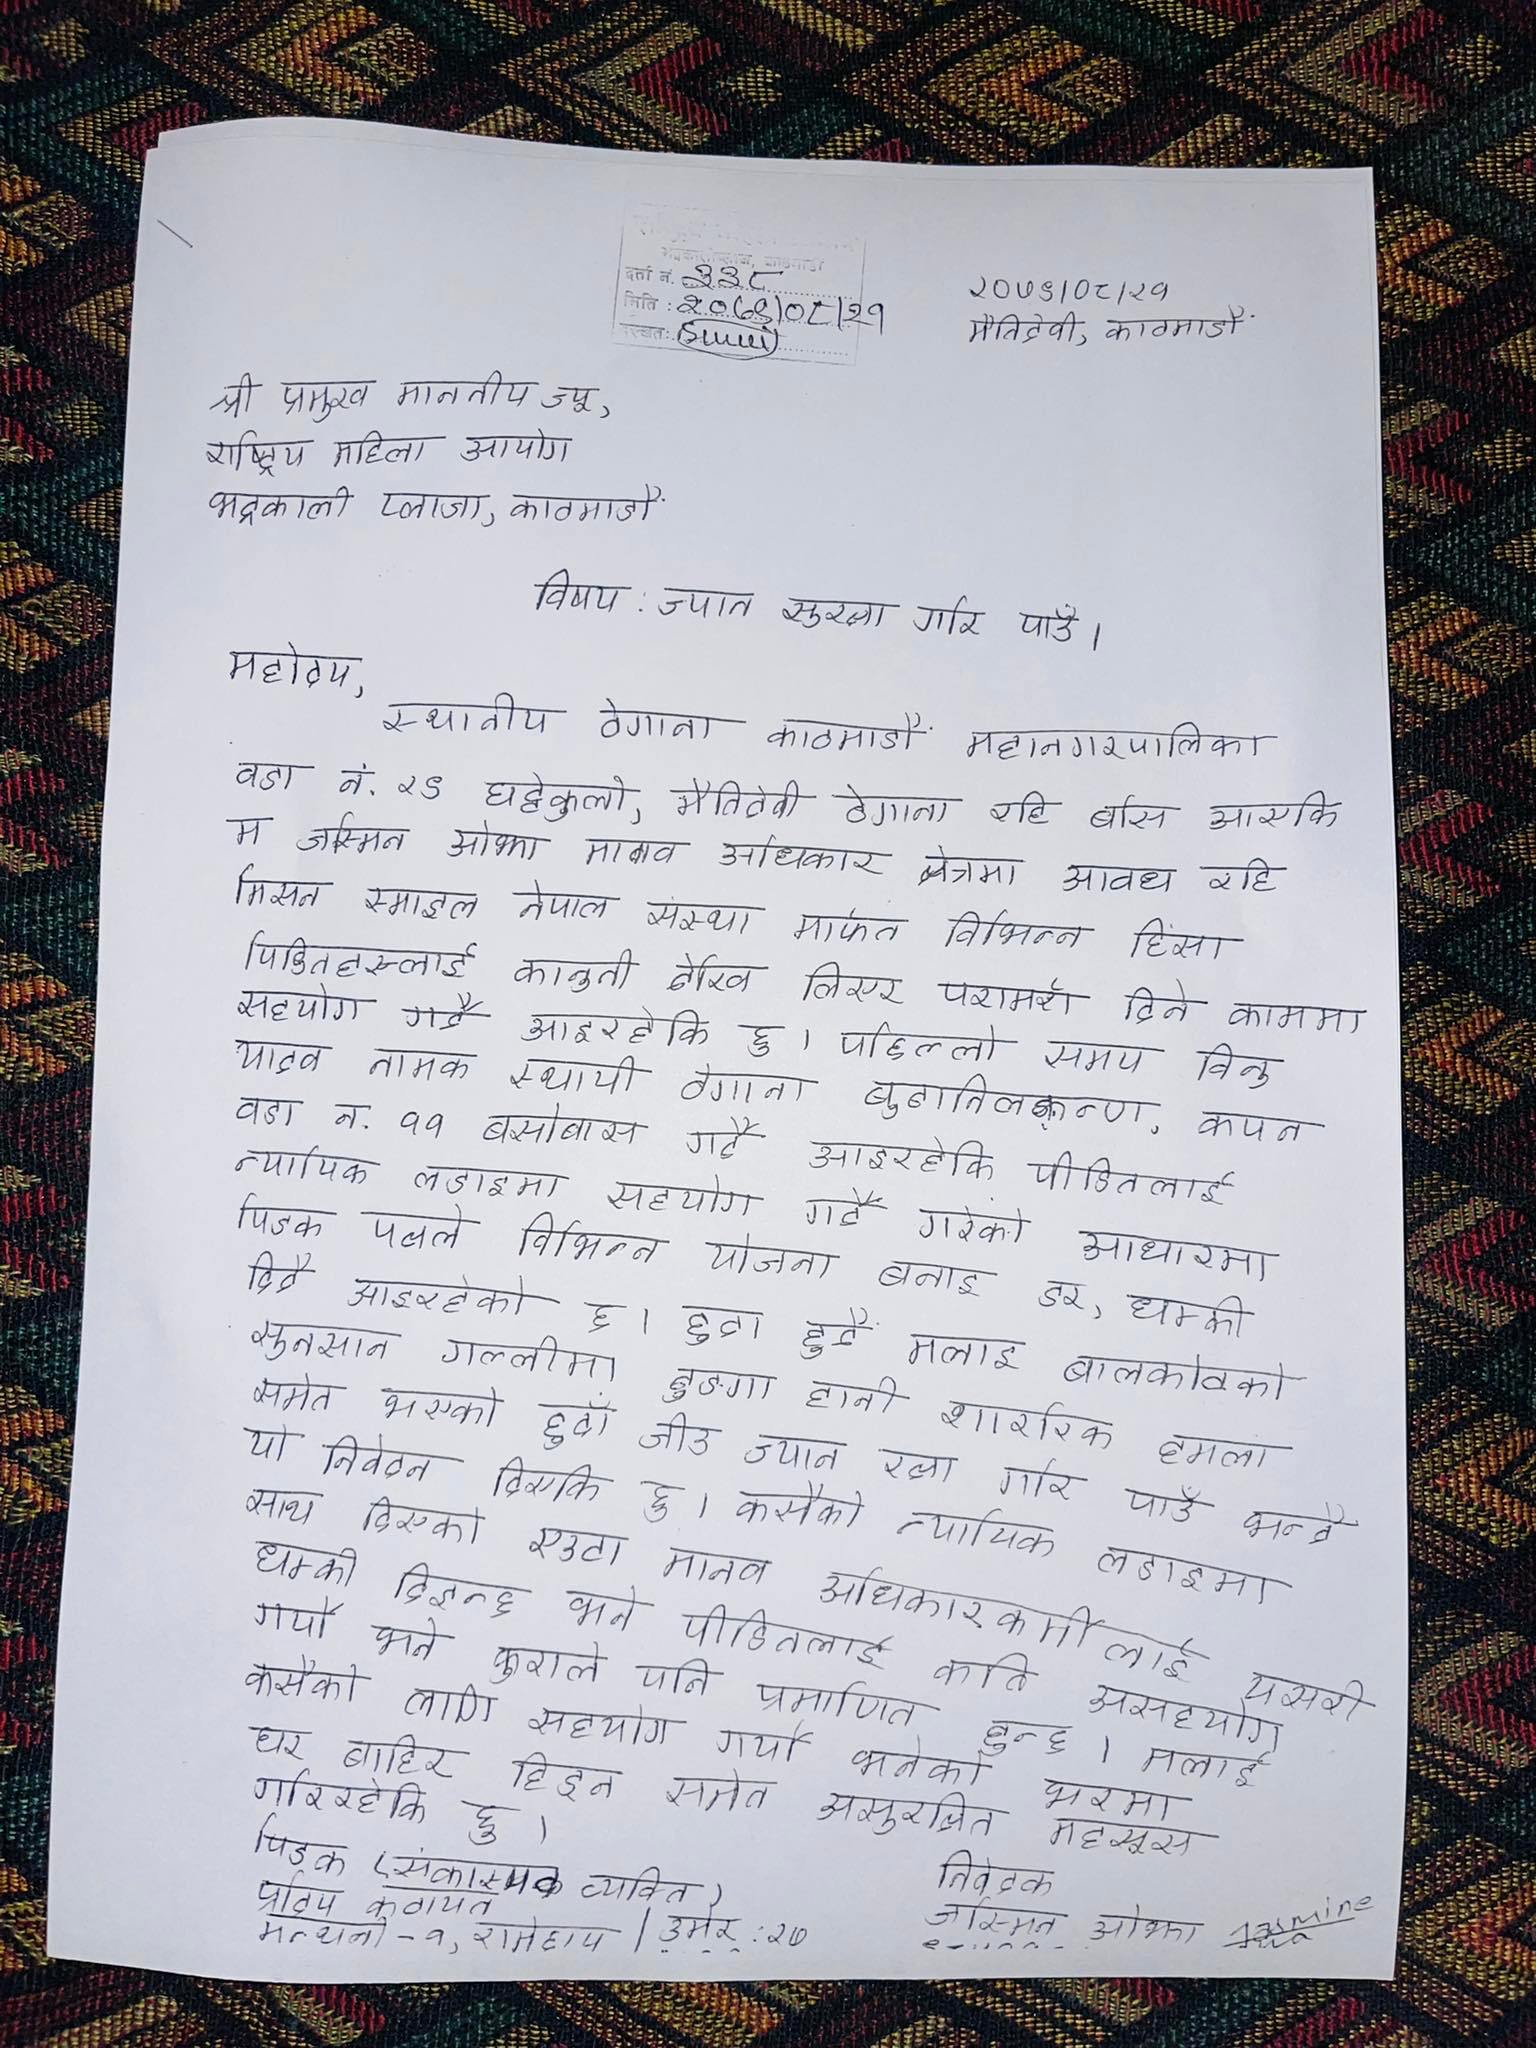 भद्रकाली प्लाजा, काठमाडौं
दर्ता नं. ३३८
मिति : २०७९।०८।२१
२०७९।०८।२१
मैतिदेवी, काठमाडौं
श्री प्रमुख माननीय ज्यू,
राष्ट्रिय महिला आयोग
भद्रकाली प्लाजा, काठमाडौं
विषय : ज्यान सुरक्षा गरि पाउँ ।
महोदय,
स्थानीय ठेगाना काठमाडौं महानगरपालिका
वडा नं. २९ घट्टेकुलो, मैतिदेवी ठेगाना रहि बसि आएकि
म जस्मिन ओझा मानव अधिकार क्षेत्रमा आवध रहि
मिसन स्माइल नेपाल संस्था मार्फत विभिन्न हिंसा
पिडितहरुलाई कानुनी देखि लिएर परामर्श दिने काममा
सहयोग गर्दै आइरहेकि छु । पछिल्लो समय विनु
यादव नामक स्थायी ठेगाना बुढानिलकण्ठ, कपन
वडा न. ११ बसोबास गर्दै आइरहेकि पीडितलाई
न्यायिक लडाइमा सहयोग गर्दै गरेको आधारमा
पिडक पक्षले विभिन्न योजना बनाइ डर, धम्की
दिदै आइरहेको छ । हुदा हुदै मलाइ बालकोटको
सुनसान गल्लीमा ढुङगा हानी शारिरिक हमला
समेत भएको हुदाँ जीउ ज्यान रक्षा गरि पाउँ भन्दै
यो निवेदन दिएकि छु । कसैको न्यायिक लडाइमा
साथ दिएको एउटा मानव अधिकारकर्मीलाई यसरी
धम्की दिइन्छ भने पीडितलाई कति असहयोग
गर्यो भने कुराले पनि प्रमाणित हुन्छ । मलाई
कसैको लागि सहयोग गर्यो भनेको भरमा
घर बाहिर हिड्न समेत असुरक्षित महसूस
गरिरहेकि छु ।
पिडक (संकास्पद व्यक्ति)
प्रदिप कठायत
मन्थनी - १, रामेछाप | उमेर : २७
निवेदक
जस्मिन ओझा Jasmine